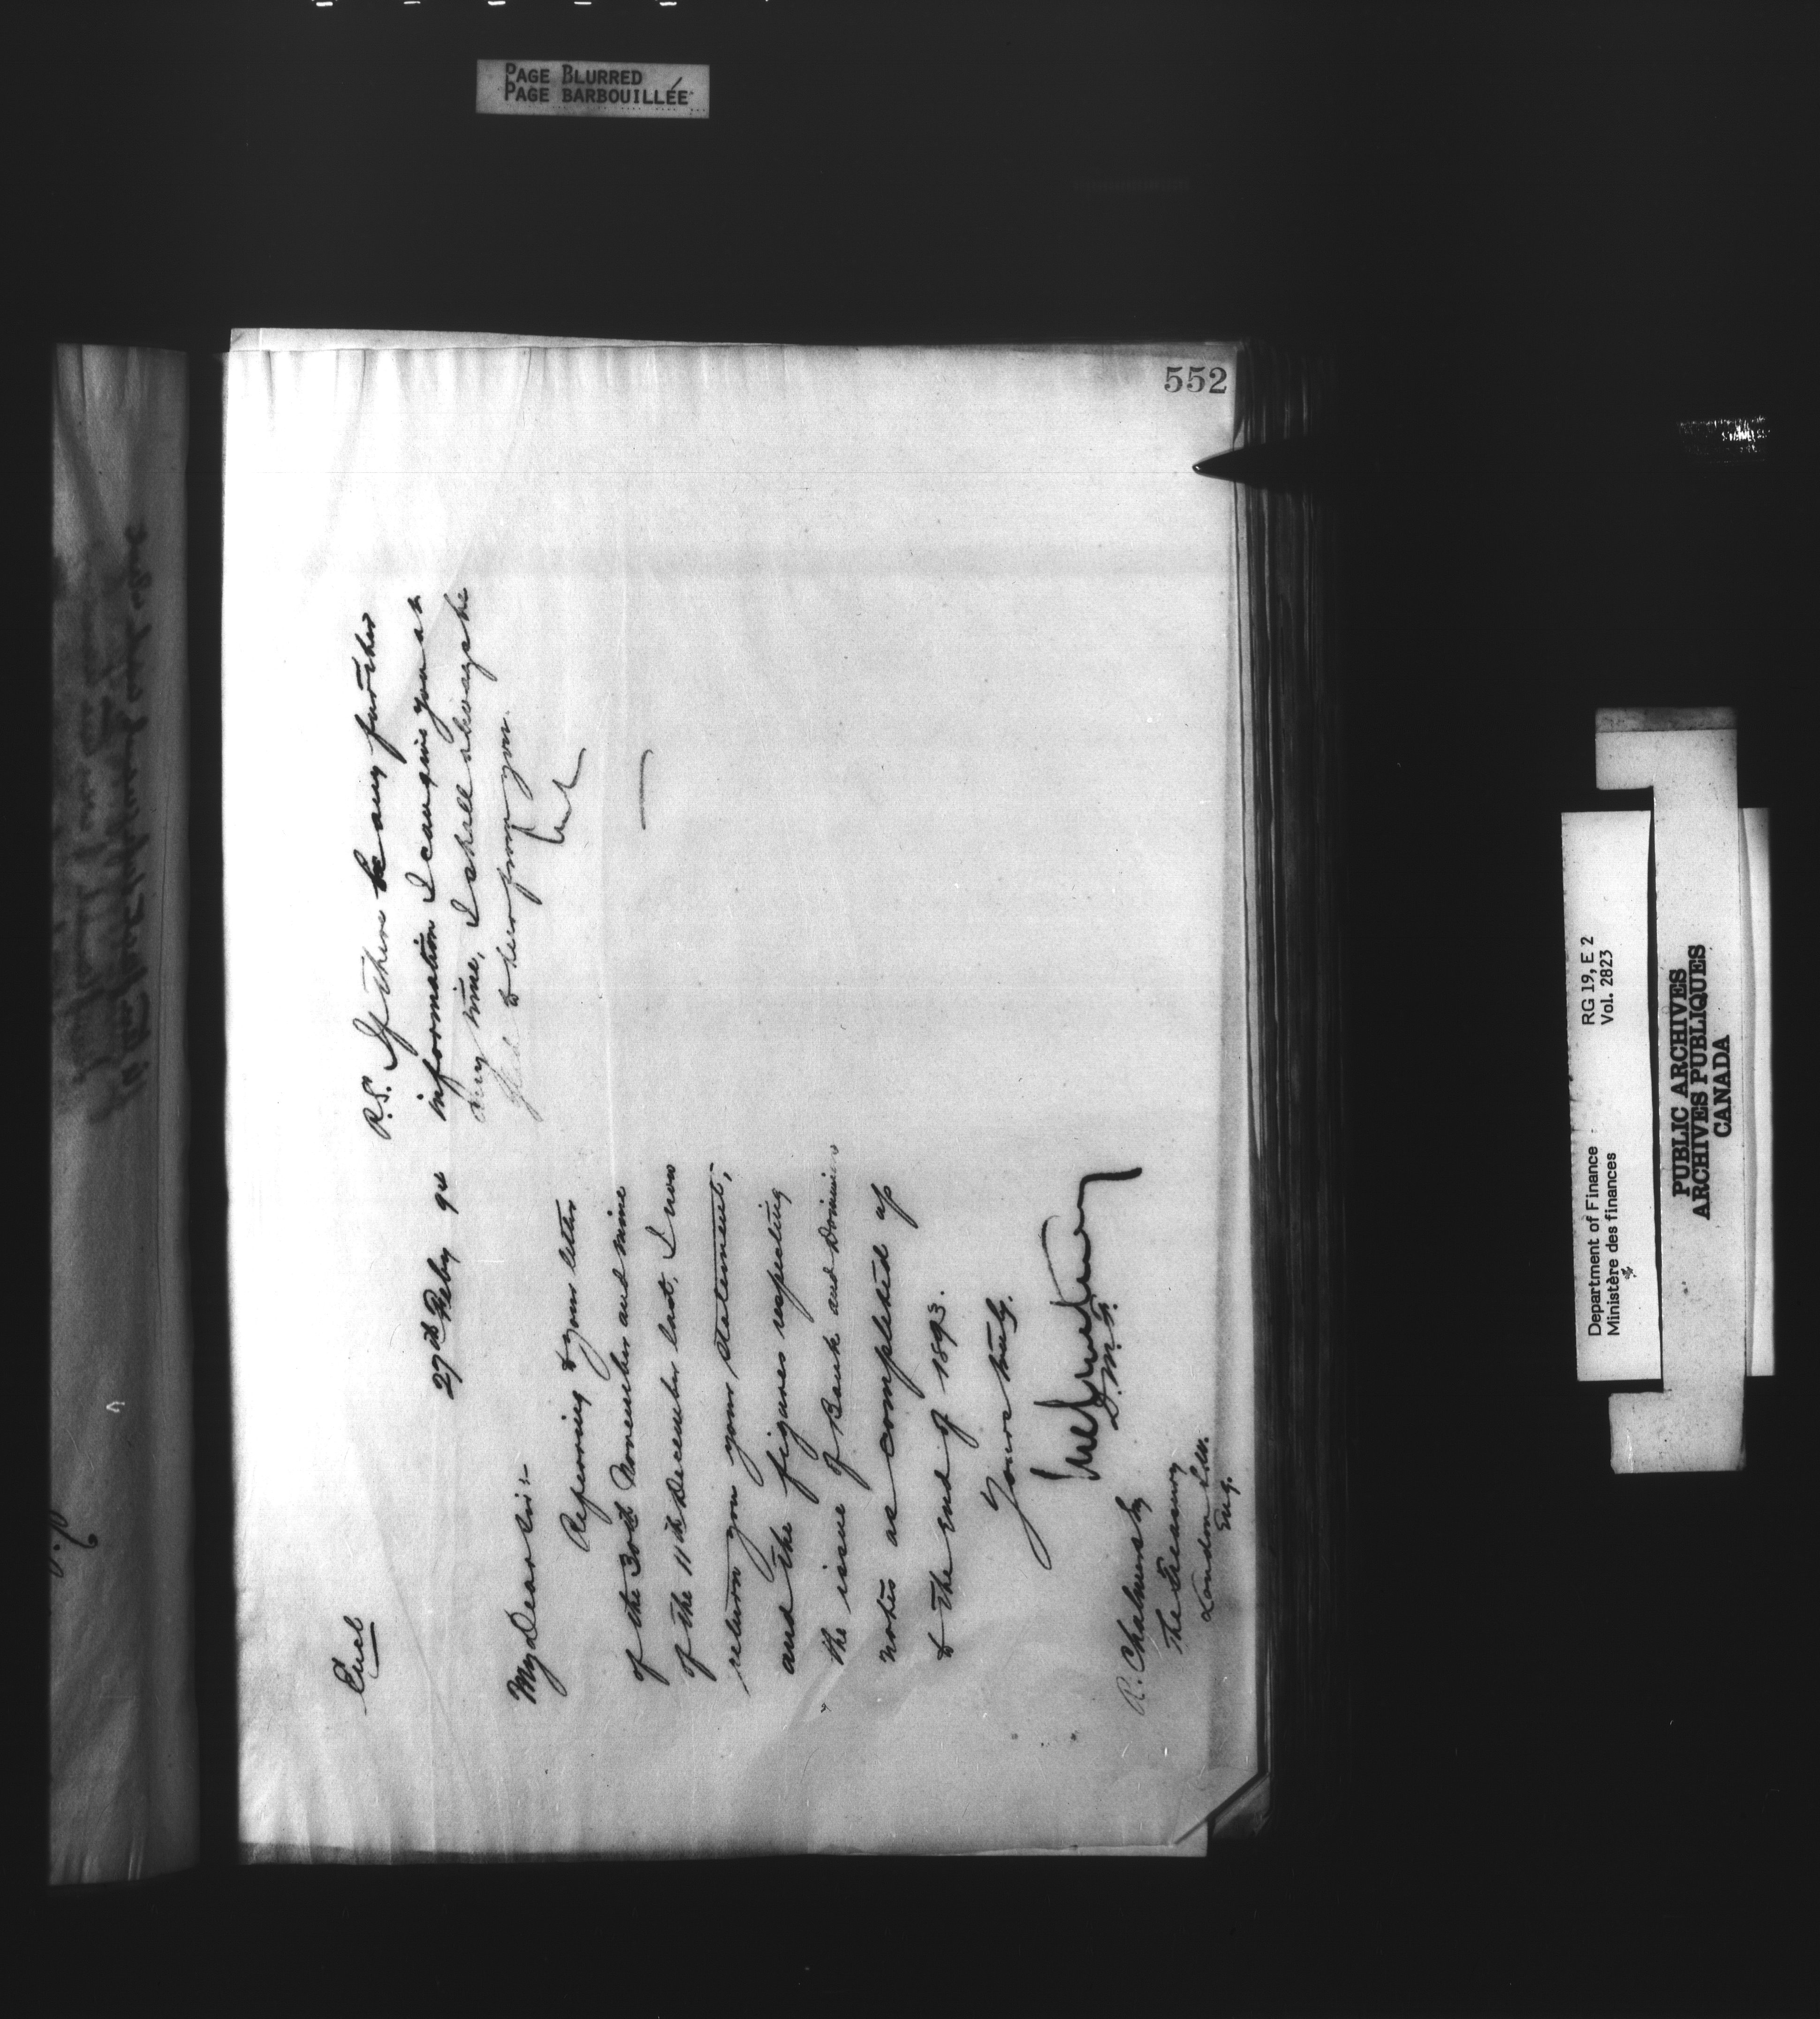 PAGE BLURRED
PAGE BARBOUILLÉE
552
Encl
27th Feby 94
My Dear Sir:-
Referring to your letter
of the 30th November and mine
of the 11th December last, I now
return you your statement,
and the figures respecting
the issue of Bank and Dominion
notes as completed up
to the end of 1893.
Yours truly.
D.M.F.
R. Chalmers Esq
The Treasury
London S.W.
Eng.
P.S. If there be any further
information I can give you at
any time, I shall always be
glad to hear from you.
Department of Finance RG 19, E 2
Ministère des finances Vol. 2823
PUBLIC ARCHIVES
ARCHIVES PUBLIQUES
CANADA